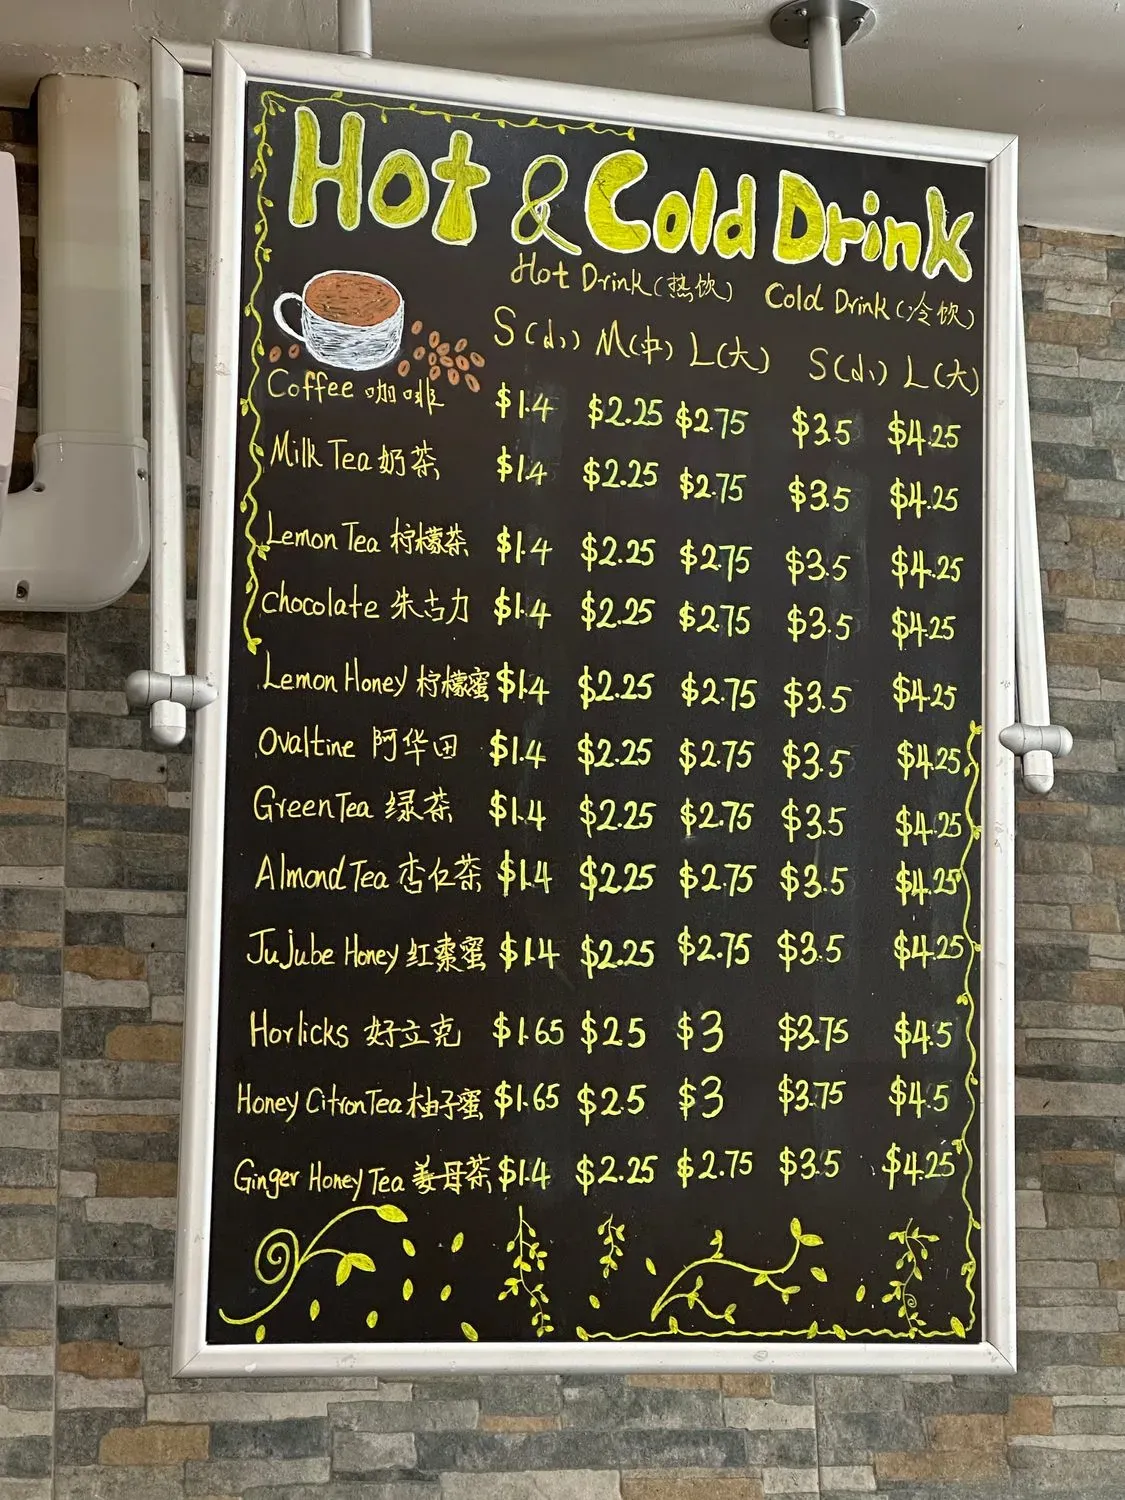 Hot & Cold Drink
Hot Drink (热饮) Cold Drink (冷饮)
S (小) M (中) L (大) S (小) L (大)
Coffee 咖啡 $1.4 $2.25 $2.75 $3.5 $4.25
Milk Tea 奶茶 $1.4 $2.25 $2.75 $3.5 $4.25
Lemon Tea 柠檬茶 $1.4 $2.25 $2.75 $3.5 $4.25
chocolate 朱古力 $1.4 $2.25 $2.75 $3.5 $4.25
Lemon Honey 柠檬蜜 $1.4 $2.25 $2.75 $3.5 $4.25
Ovaltine 阿华田 $1.4 $2.25 $2.75 $3.5 $4.25
Green Tea 绿茶 $1.4 $2.25 $2.75 $3.5 $4.25
Almond Tea 杏仁茶 $1.4 $2.25 $2.75 $3.5 $4.25
JuJube Honey 红枣蜜 $1.4 $2.25 $2.75 $3.5 $4.25
Horlicks 好立克 $1.65 $2.5 $3 $3.75 $4.5
Honey Citron Tea 柚子蜜 $1.65 $2.5 $3 $3.75 $4.5
Ginger Honey Tea 姜母茶 $1.4 $2.25 $2.75 $3.5 $4.25